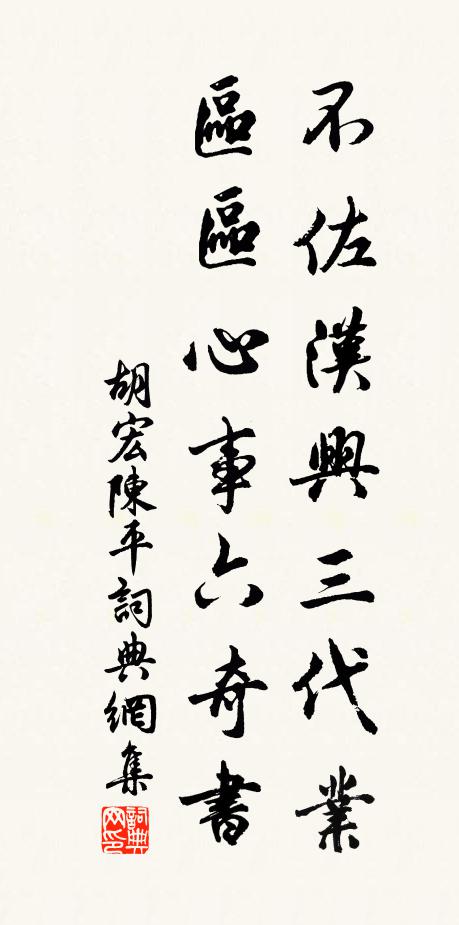 不佐漢興三代業
區區心事六奇書
胡宏陳平詞典網集
詞典網印